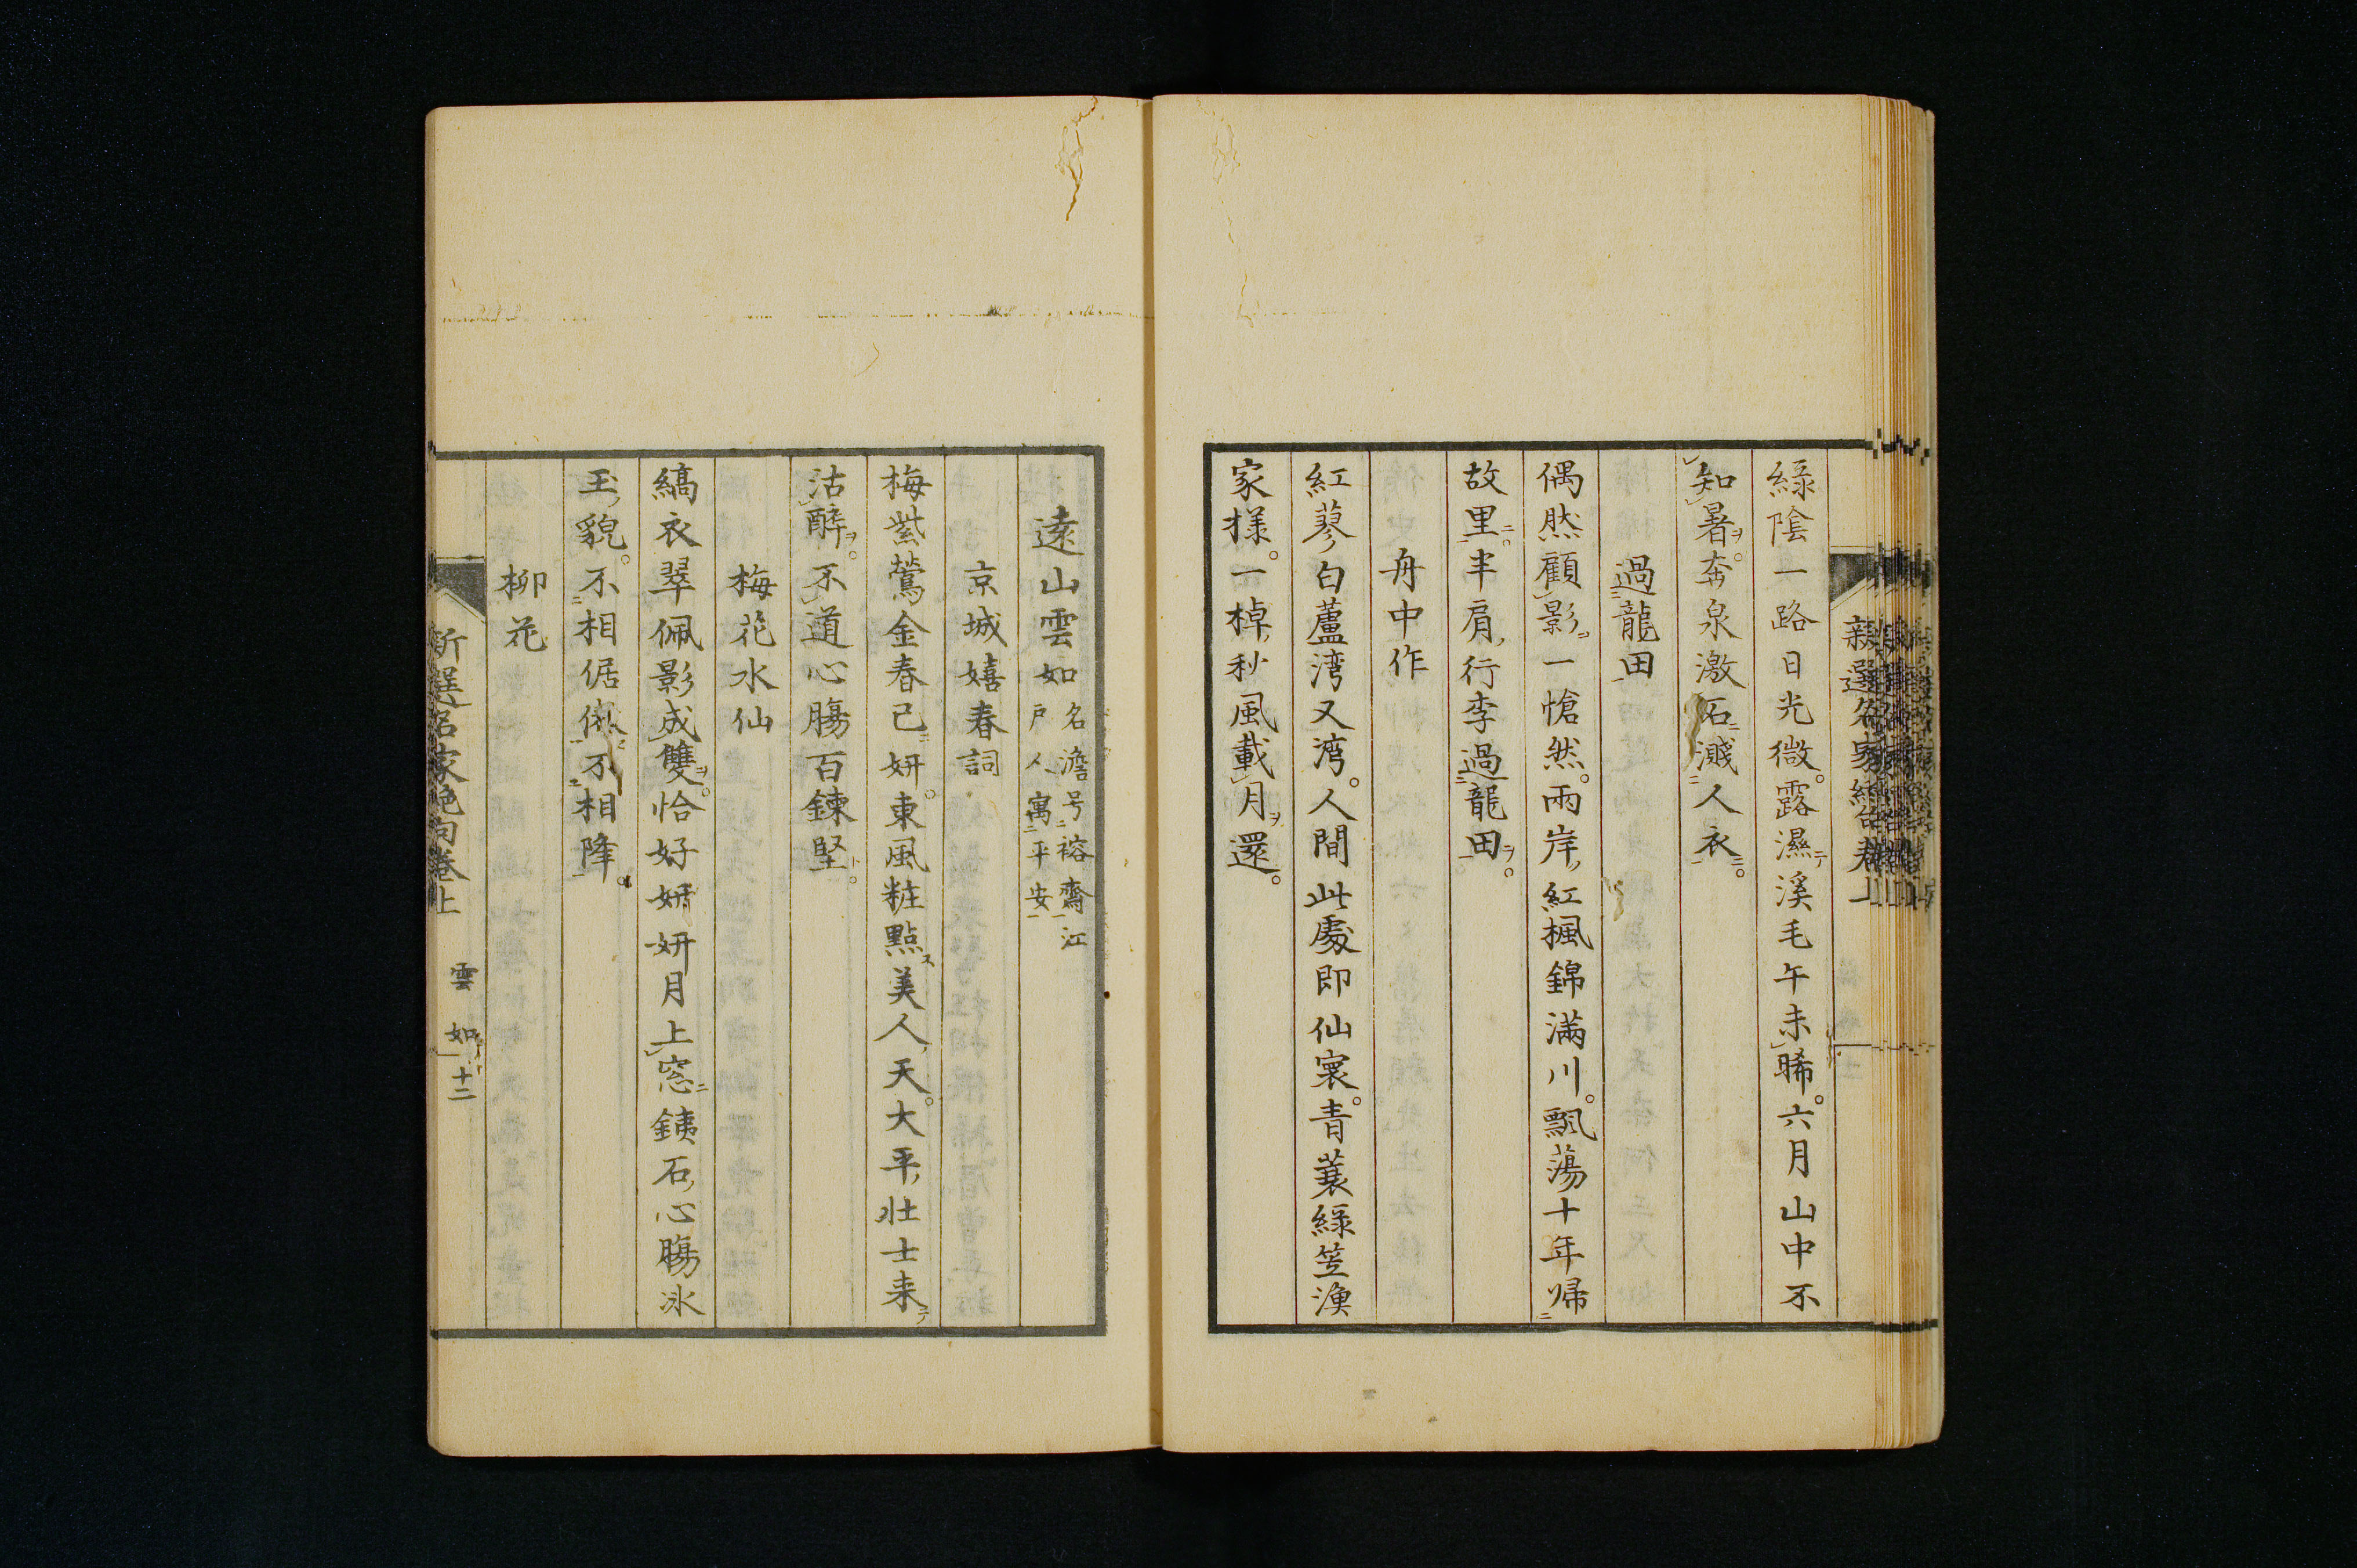 緑陰一路日光微。露濕テ溪毛午未晞。六月山中不
知暑ヲ。奔泉激石ニ濺人衣ニ。
過龍田
偶然顧影ヲ一愴然。兩岸紅楓錦滿川。飄蕩十年帰
故里ニ。半肩行李過龍田ヲ。
舟中作
紅蓼白蘆湾又湾。人間此處即仙寰。青蓑緑笠漁
家様。一棹秋風載月ヲ還。
遠山雲如
名澹号裕齋江
戸人寓平安
京城嬉春詞
梅紫鶯金春已妍。東風粧點ス美人天。大平壮士来テ
沽醉ヲ。不道心膓百鍊堅ト。
梅花水仙
縞衣翠佩影成雙ヲ。恰好妍妍月上窓ニ銕石心膓冰
玉貌。不相倨傲不相降。
柳花
新選名家絶句巻上
雲如
十二